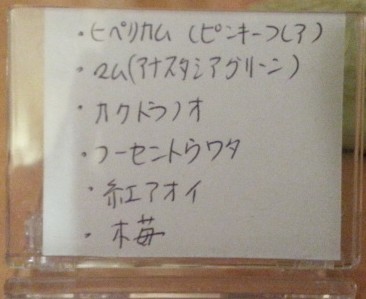 ・ヒペリカム(ピンキーフレア)
・マム(アナスタシアグリーン)
・カクトラノオ
・フーセントウワタ
・紅アオイ
・木苺